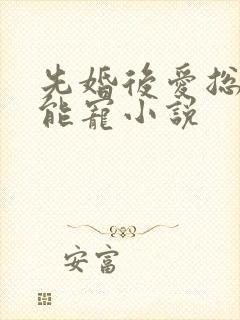 先婚後愛總
能寵小説
安富